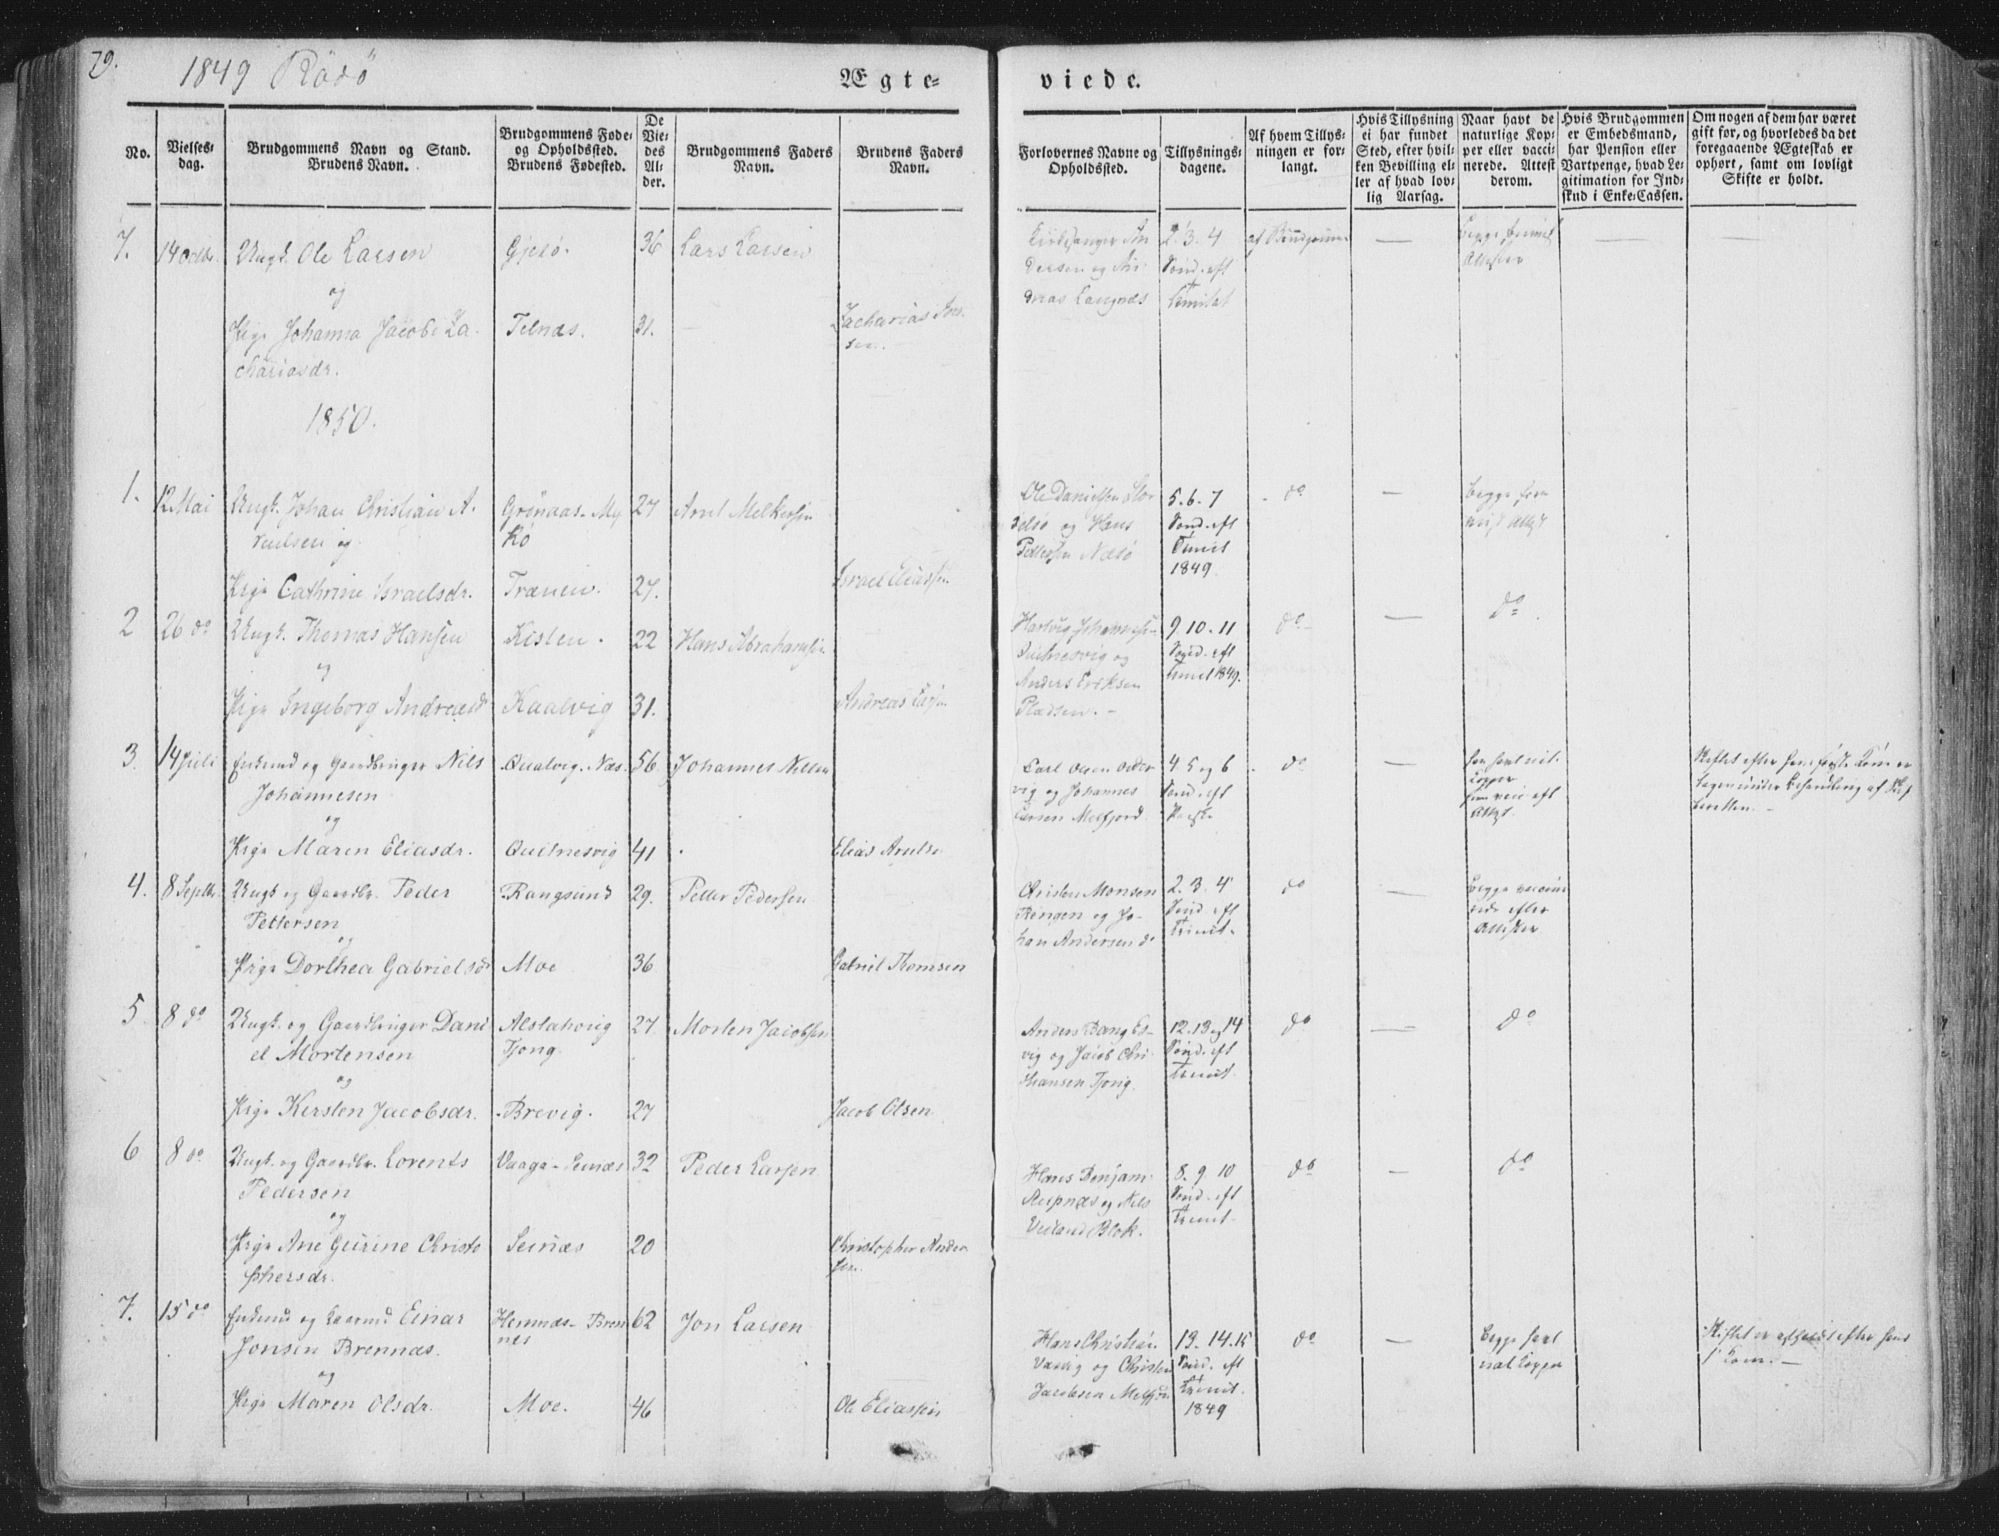 79.
1849 Rödö
Ægte-
viede.
No.
Vielses-
dag.
Brudgommens Navn og Stand.
Brudens Navn.
Brudgommens Føde-
og Opholdssted.
Brudens Fødested.
De
Vie-
des
Al-
der.
Brudgommens Faders
Navn.
Brudens Faders
Navn.
Forlovernes Navne og
Opholdssted.
Tillysnings-
dagene.
Af hvem Tillys-
ningen er for-
langt.
Hvis Tillysning
ei har fundet
Sted, efter hvil-
ken Bevilling el-
ler af hvad lov-
lig Aarsag.
Naar havt de
naturlige Kop-
per eller vacci-
nerede. Attest
derom.
Hvis Brudgommen
er Embedsmand,
har Pension eller
Vartpenge, hvad Le-
gitimation for Ind-
skud i Enke-Cassen.
Om nogen af dem har været
gift før, og hvorledes da det
foregaaende Ægteskab er
ophørt, samt om lovligt
Skifte er holdt.
7. 14 Octbr. Ungk. Ole Larsen
og
Pige Johanna Jacobe Za-
chariasdr.
Gjesø.
Telnæs.
36
31.
Lars Larsen
Zacharias
sen.
Kirkesanger An
dersen og An-
dreas Langnæs
2. 3. 4
Sønd. eft
Trinitat
af Brudgommen
—
Begge
Attester
—
—
1850.
1. 12 Mai Ungk. Johan Christian A-
rentsen og
Pige Cathrine Israelsdr.
Grönaas - My
kø
Trænen.
27
27.
Arnt Melkersen
Israel Eliassen
Ole Danielsen Stor
selsø og Hans
Pettersen Næsø
5. 6. 7
Sønd. eft
Trinit
1849.
do
—
begge
Attest
2 26 do Ungk. Thomas Hansen
og
Pige Ingeborg Andreasdr
Kisten.
Kaalvig
22
31.
Hans Abrahamsen
Andreas
Hartvig Johannese-
Quitnesvig og
Anders Eriksen
Pladsen. -
9. 10. 11
Sønd. eft
Trinit 1849.
do
—
do
3. 14 Juli Enkemd og Gaardbruger Nils
Johannesen
og
Pige Maren Eliasdr.
Qualvig. Næs.
Quitnesvig
56.
41
Johannes Nilsen
Elias Arntsen
Carl Olsen Older
vig og Johannes
Larsen Melfjord
4. 5 og 6
Sønd. eft
Paaske
do
—
han havt nat.
Kopper
hun vacc eft
Attest.
Skiftet efter hans første Kone er
tagen under Behandling af Skif
teretten. -
4. 8 Septbr. Ungk og Gaardbr. Peder
Pettersen
og
Pige Dorthea Gabrielsdr
Rangsund
Moe
29.
36
Petter Pedersen
Gabriel Thomsen
Christen Monsen
Rengen og Jo-
han Andersen do
2. 3. 4
Sønd. eft
Trinit.
do
—
begge vaccine
rede efter
Attester
5 8 do Ungk. og Gaardbruger Dani
el Mortensen
og
Pige Kirsten Jacobsdr.
Alstahovig
Tjong.
Brevig.
27.
27
Morten Jacobsen
Jacob Olsen
Anders Bang Es-
vig og Jacob Chri
stiansen Tjong.
12. 13 og 14
Sønd. eft
Trinit.
do
—
do
6 8 do Ungk. og Gaardbr. Lorents
Pedersen
og
Pige Ane Gurine Christo
phersdr.
Vaaga - Seinæs
Seinæs
32
20
Peder Larsen
Christopher Ander
sen.
Hans Benjam.
Reipnæs og Nils
Veiland Blok.
8. 9. 10
Sønd. eft
Trinit.
do
—
do
7. 15 do Enkemd og Gaardmd Einar
Jonsen Brennæs.
og
Pige Maren Olsdr.
Hemnæs - Bren
nes
Moe.
62
46
Jon Larsen
Ole Eliassen
Hans Christian
Vaavig og Christen
Jacobsen Melfjord
13. 14. 15
Sønd. eft
Trinit.
1849
do
—
begge havt
nat Kopper
Skiftet er afholdt efter hans
f. Kone. —